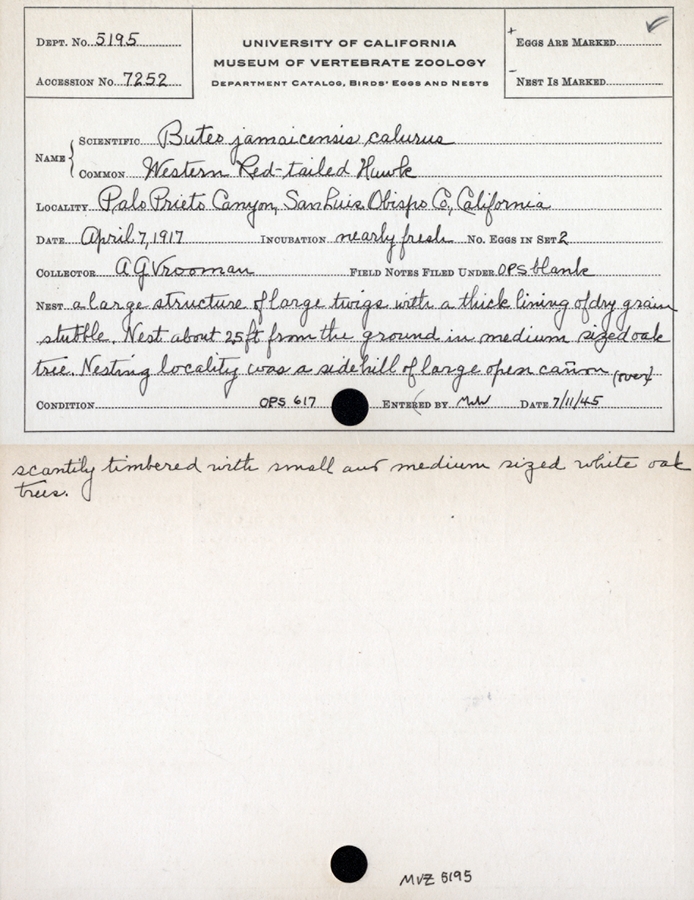 DEPT. NO. 5195
ACCESSION NO. 7252
UNIVERSITY OF CALIFORNIA
MUSEUM OF VERTEBRATE ZOOLOGY
DEPARTMENT CATALOG, BIRDS' EGGS AND NESTS
+ EGGS ARE MARKED ✓
- NEST IS MARKED
NAME { SCIENTIFIC Buteo jamaicensis calurus
COMMON Western Red-tailed Hawk
LOCALITY Palo Prieto Canyon, San Luis Obispo Co, California
DATE April 7, 1917 INCUBATION nearly fresh NO. EGGS IN SET 2
COLLECTOR A G Vrooman FIELD NOTES FILED UNDER OPS blank
NEST a large structure of large twigs with a thick lining of dry grain
stubble. Nest about 25 ft from the ground in medium sized oak
tree. Nesting locality was a sidehill of large open cañon (over)
CONDITION OPS 617 ENTERED BY DATE 7/11/45
scantily timbered with small and medium sized white oak
trees.
MVZ 5195